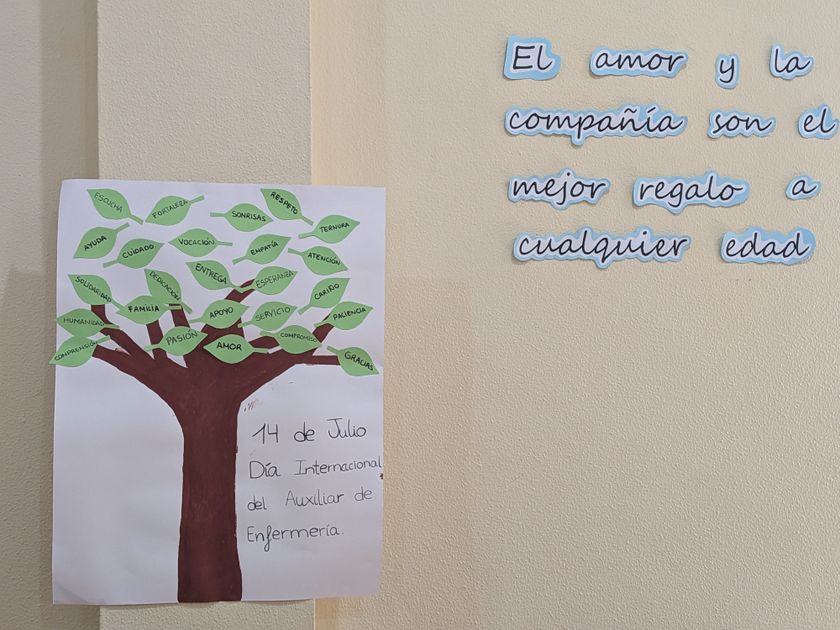 ESCUCHA
FORTALEZA
SONRISAS
RESPETO
TERNURA
AYUDA
CUIDADO
VOCACIÓN
EMPATÍA
ATENCIÓN
SOLIDARIDAD
DEDICACIÓN
ENTREGA
ESPERANZA
CARIÑO
HUMANIDAD
FAMILIA
APOYO
SERVICIO
PACIENCIA
COMPRENSIÓN
PASIÓN
AMOR
COMPROMISO
GRACIAS
14 de Julio
Día Internacional
del Auxiliar de
Enfermería.
El amor y la
compañía son el
mejor regalo a
cualquier edad